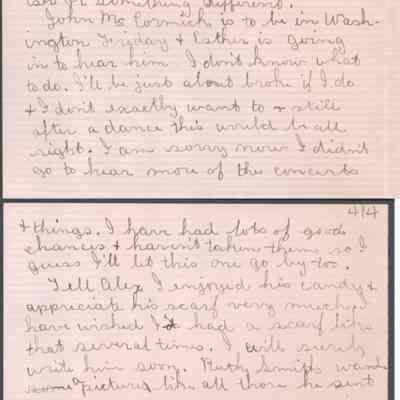 ish for something different.
John Mc Cormick is to be in Wash-
ington Friday & Esther is going
in to hear him I don't know what
to do. I'll be just about broke if I do
& I don't exactly want to & still
after a dance this would be all
right. I am sorry now I didn't
go to hear more of the concerts
4/4
& things. I have had lots of good
chances & haven't taken them so I
guess I'll let this one go by too.
Tell Alex I enjoyed his candy &
appreciate his scarf very much
have wished I had a scarf like
that several times. I will surely
write him soon. Ruth Smith wants
a picture like all those he sent